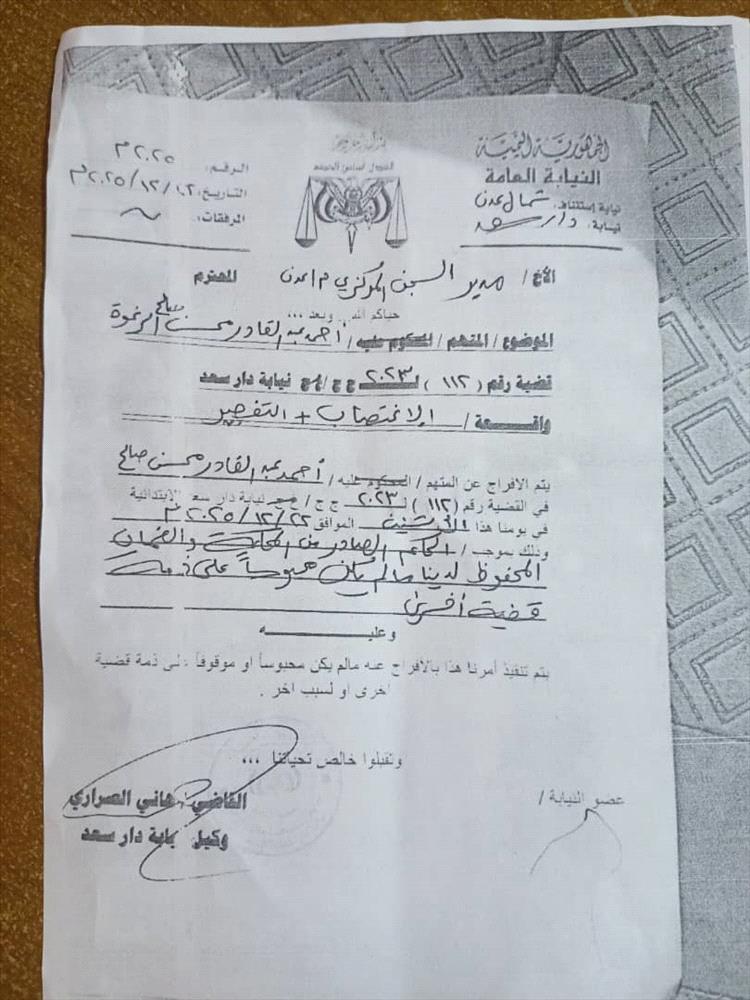 الجمهورية اليمنية
النيابة العامة
نيابة إستئناف: شمال عدن
نيابة: دار سعد
الرقم: ٢٠٢٥م
التاريخ: ٢٠٢٥/١٢/٠٢م
المرفقات:
الأخ/ مدير السجن المركزي م/عدن المحترم
حياكم الله... وبعد ...
الموضوع/ المتهم / المحكوم عليه/ أحمد عبدالقادر محسن صالح
قضية رقم (١١٢) لـ ٢٠٢٣ ج ج/ نيابة دار سعد
واقعة/ الإغتصاب + التفجير
يتم الافراج عن المتهم/ المحكوم عليه/ أحمد عبدالقادر محسن صالح
في القضية رقم (١١٢) لـ ٢٠٢٣ ج ج/ نيابة دار سعد الإبتدائية
في يومنا هذا الموافق ٢٠٢٥/١٢/٢٢م
وذلك بموجب/ الصادر من المحكمة والضمان
المحفوظ لدينا مالم يكن محبوساً على ذمة
قضية أخرى
وعليه
يتم تنفيذ أمرنا هذا بالافراج عنه مالم يكن محبوساً أو موقوفاً على ذمة قضية
اخرى او لسبب اخر .
وتقبلوا خالص تحياتنا ،،،
عضو النيابة/
القاضي/ هاني الصراري
وكيل نيابة دار سعد